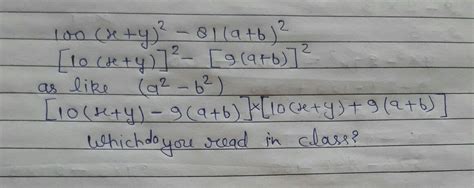 100(x+y)² - 81(a+b)²
[10(x+y)]² - [9(a+b)]²
as like (a² - b²)
[10(x+y) - 9(a+b)]×[10(x+y) + 9(a+b)]
Which do you read in class?